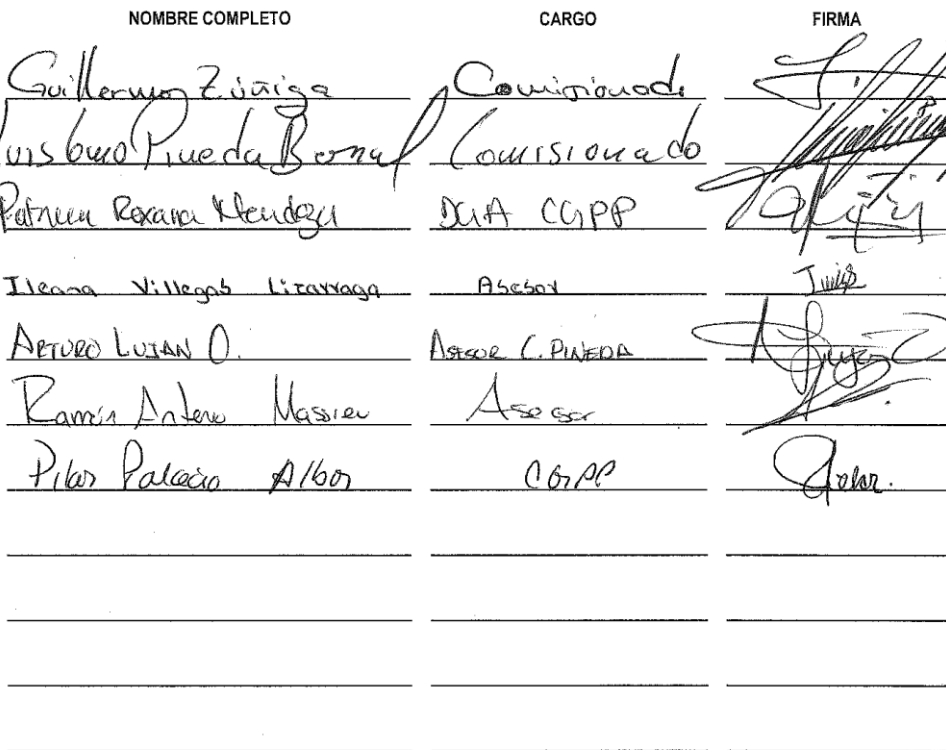 NOMBRE COMPLETO CARGO FIRMA
Guillermo Zúñiga Comisionado
Luis Gmo Pineda Bernal Comisionado
Patricia Roxana Mendoza DGA CGPP
Ileana Villegas Lizarraga Asesor
ARTURO LUJAN O. ASESOR C. PINEDA
Ramón Antero Massieu Asesor
Pilar Palacio Albor CGPP